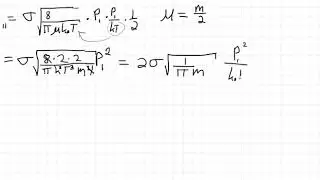 = σ √(8/(πμk₀T)) · P₁ · P₁/(kT) · 1/2    μ = m/2
= σ √(8·2·2/(π k² T³ m 4)) P₁² = 2σ √(1/(πm)) P₁²/k₀!